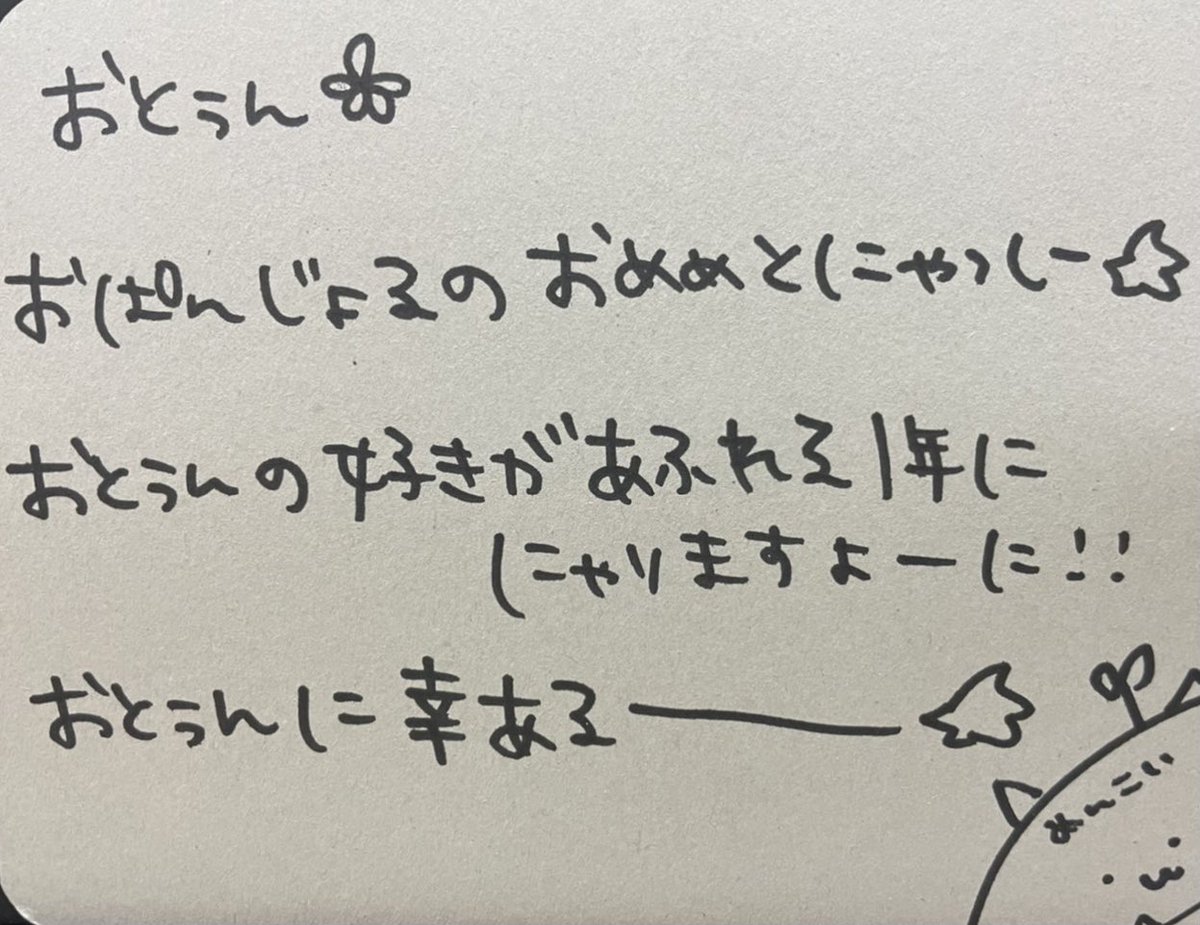 おとぅん
おぱんじょるの おめぁとにゃっしー
おとぅんの好きがあふれる1年に
にゃりますよーに!!
おとぅんに幸ある――
めんこい